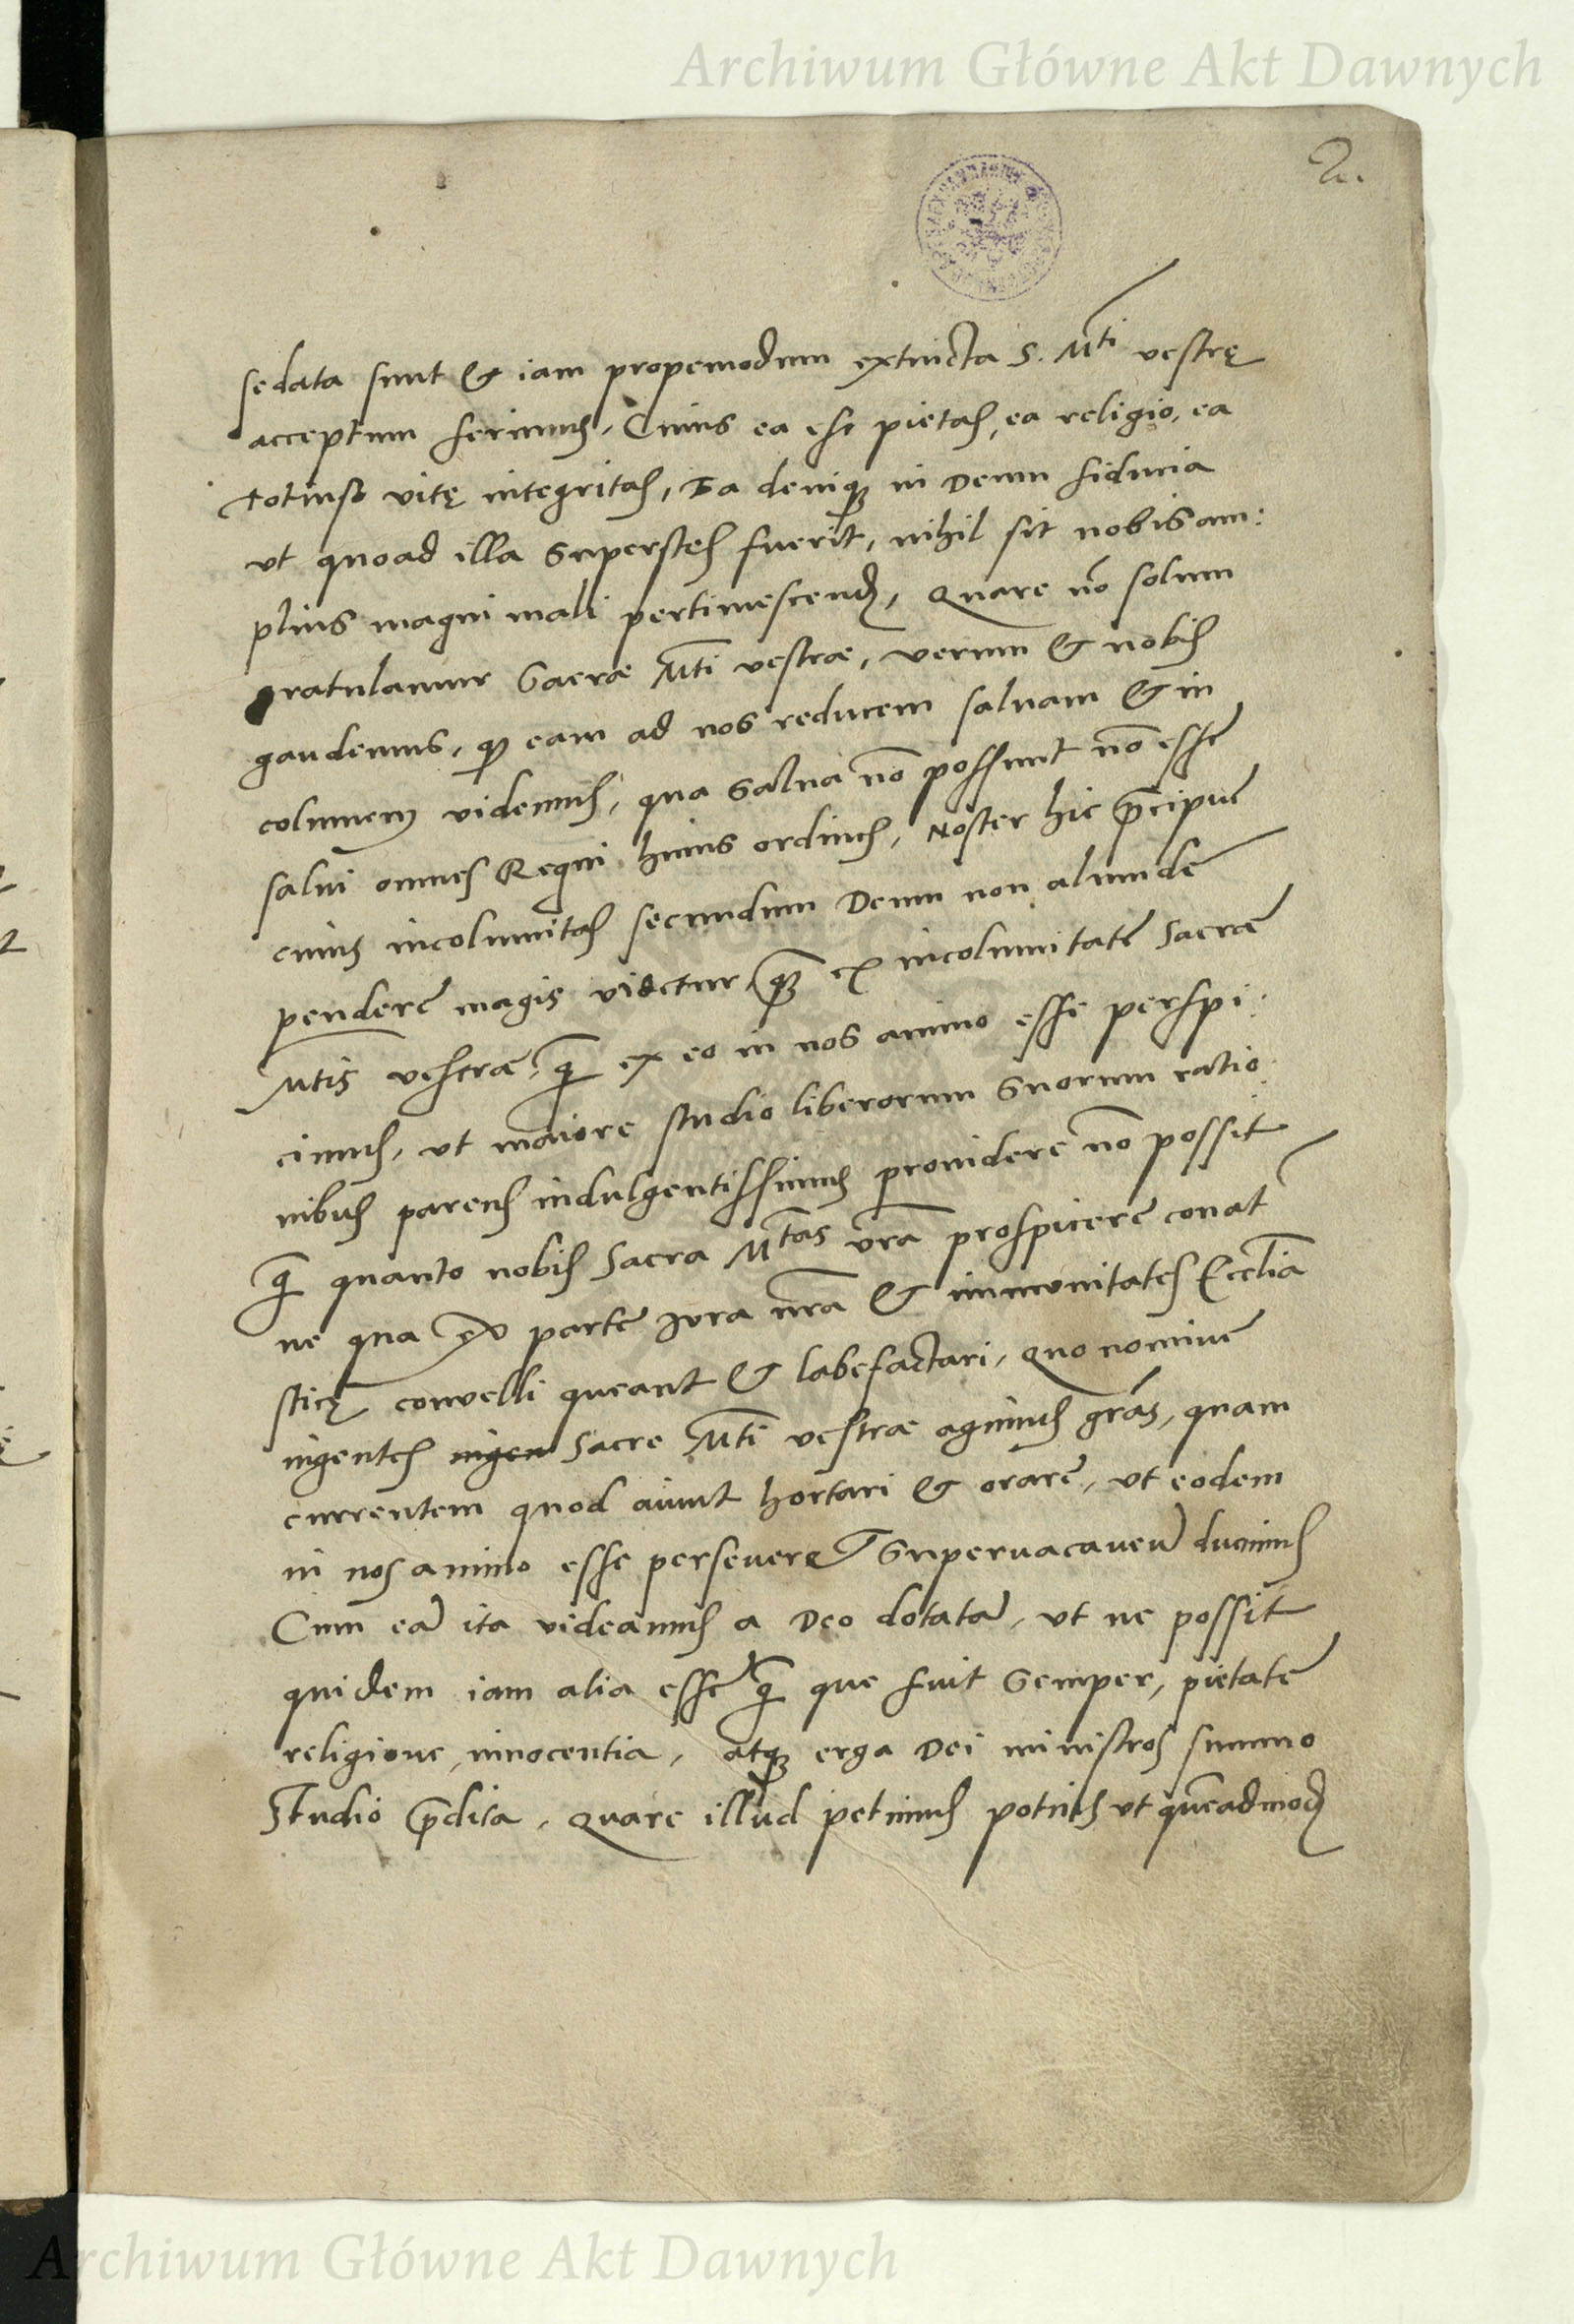 Archiwum Główne Akt Dawnych
2.
sedata sunt & iam propemodum extincta S. Mti vestrę
acceptum ferimus, Cuius ea est pietas, ea religio, ea
totius vitę integritas, Ea deniq; in Deum fiducia
ut quoad illa superstes fuerit, nihil sit nobis am:
plius magni mali pertimescend, Quare nō solum
gratulamur Sacræ Mti vestræ, verum & nobis
gaudemus, qp eam ad nos reducem saluam & in
columem videmus, qua salua nō possunt nō esse
salui omnes Regni huius ordines, Noster hic p̄cipue
cuius incolumitas secundum Deum non aliunde
pendere magis videtur, q̄ ex incolumitate Sacræ
Mtis vestræ, q̄ ex eo in nos animo esse perspi:
cimus, ut maiore studio liberorum suorum ratio:
nibus parens indulgentissimus prouidere nō possit
q̄ quanto nobis Sacra Mtas vr̄a prospicere conat
ne qua ex parte iura nr̄a & immunitates Eccl̄ia
sticę convelli queant & labefactari, Quo nomine
ingentes ingen Sacre Mti vestræ agimus grās, quam
currentem quod aiunt hortari & orare, ut eodem
in nos animo esse perseueret superuacaneū ducimus
Cum eā ita videamus a Deo dotatā, ut ne possit
quidem iam alia esse q̄ que fuit semper, pietate
religione, innocentia, atq; erga Dei ministros summo
studio p̄dita, Quare illud petimus potius ut quēadmod
Archiwum Główne Akt Dawnych